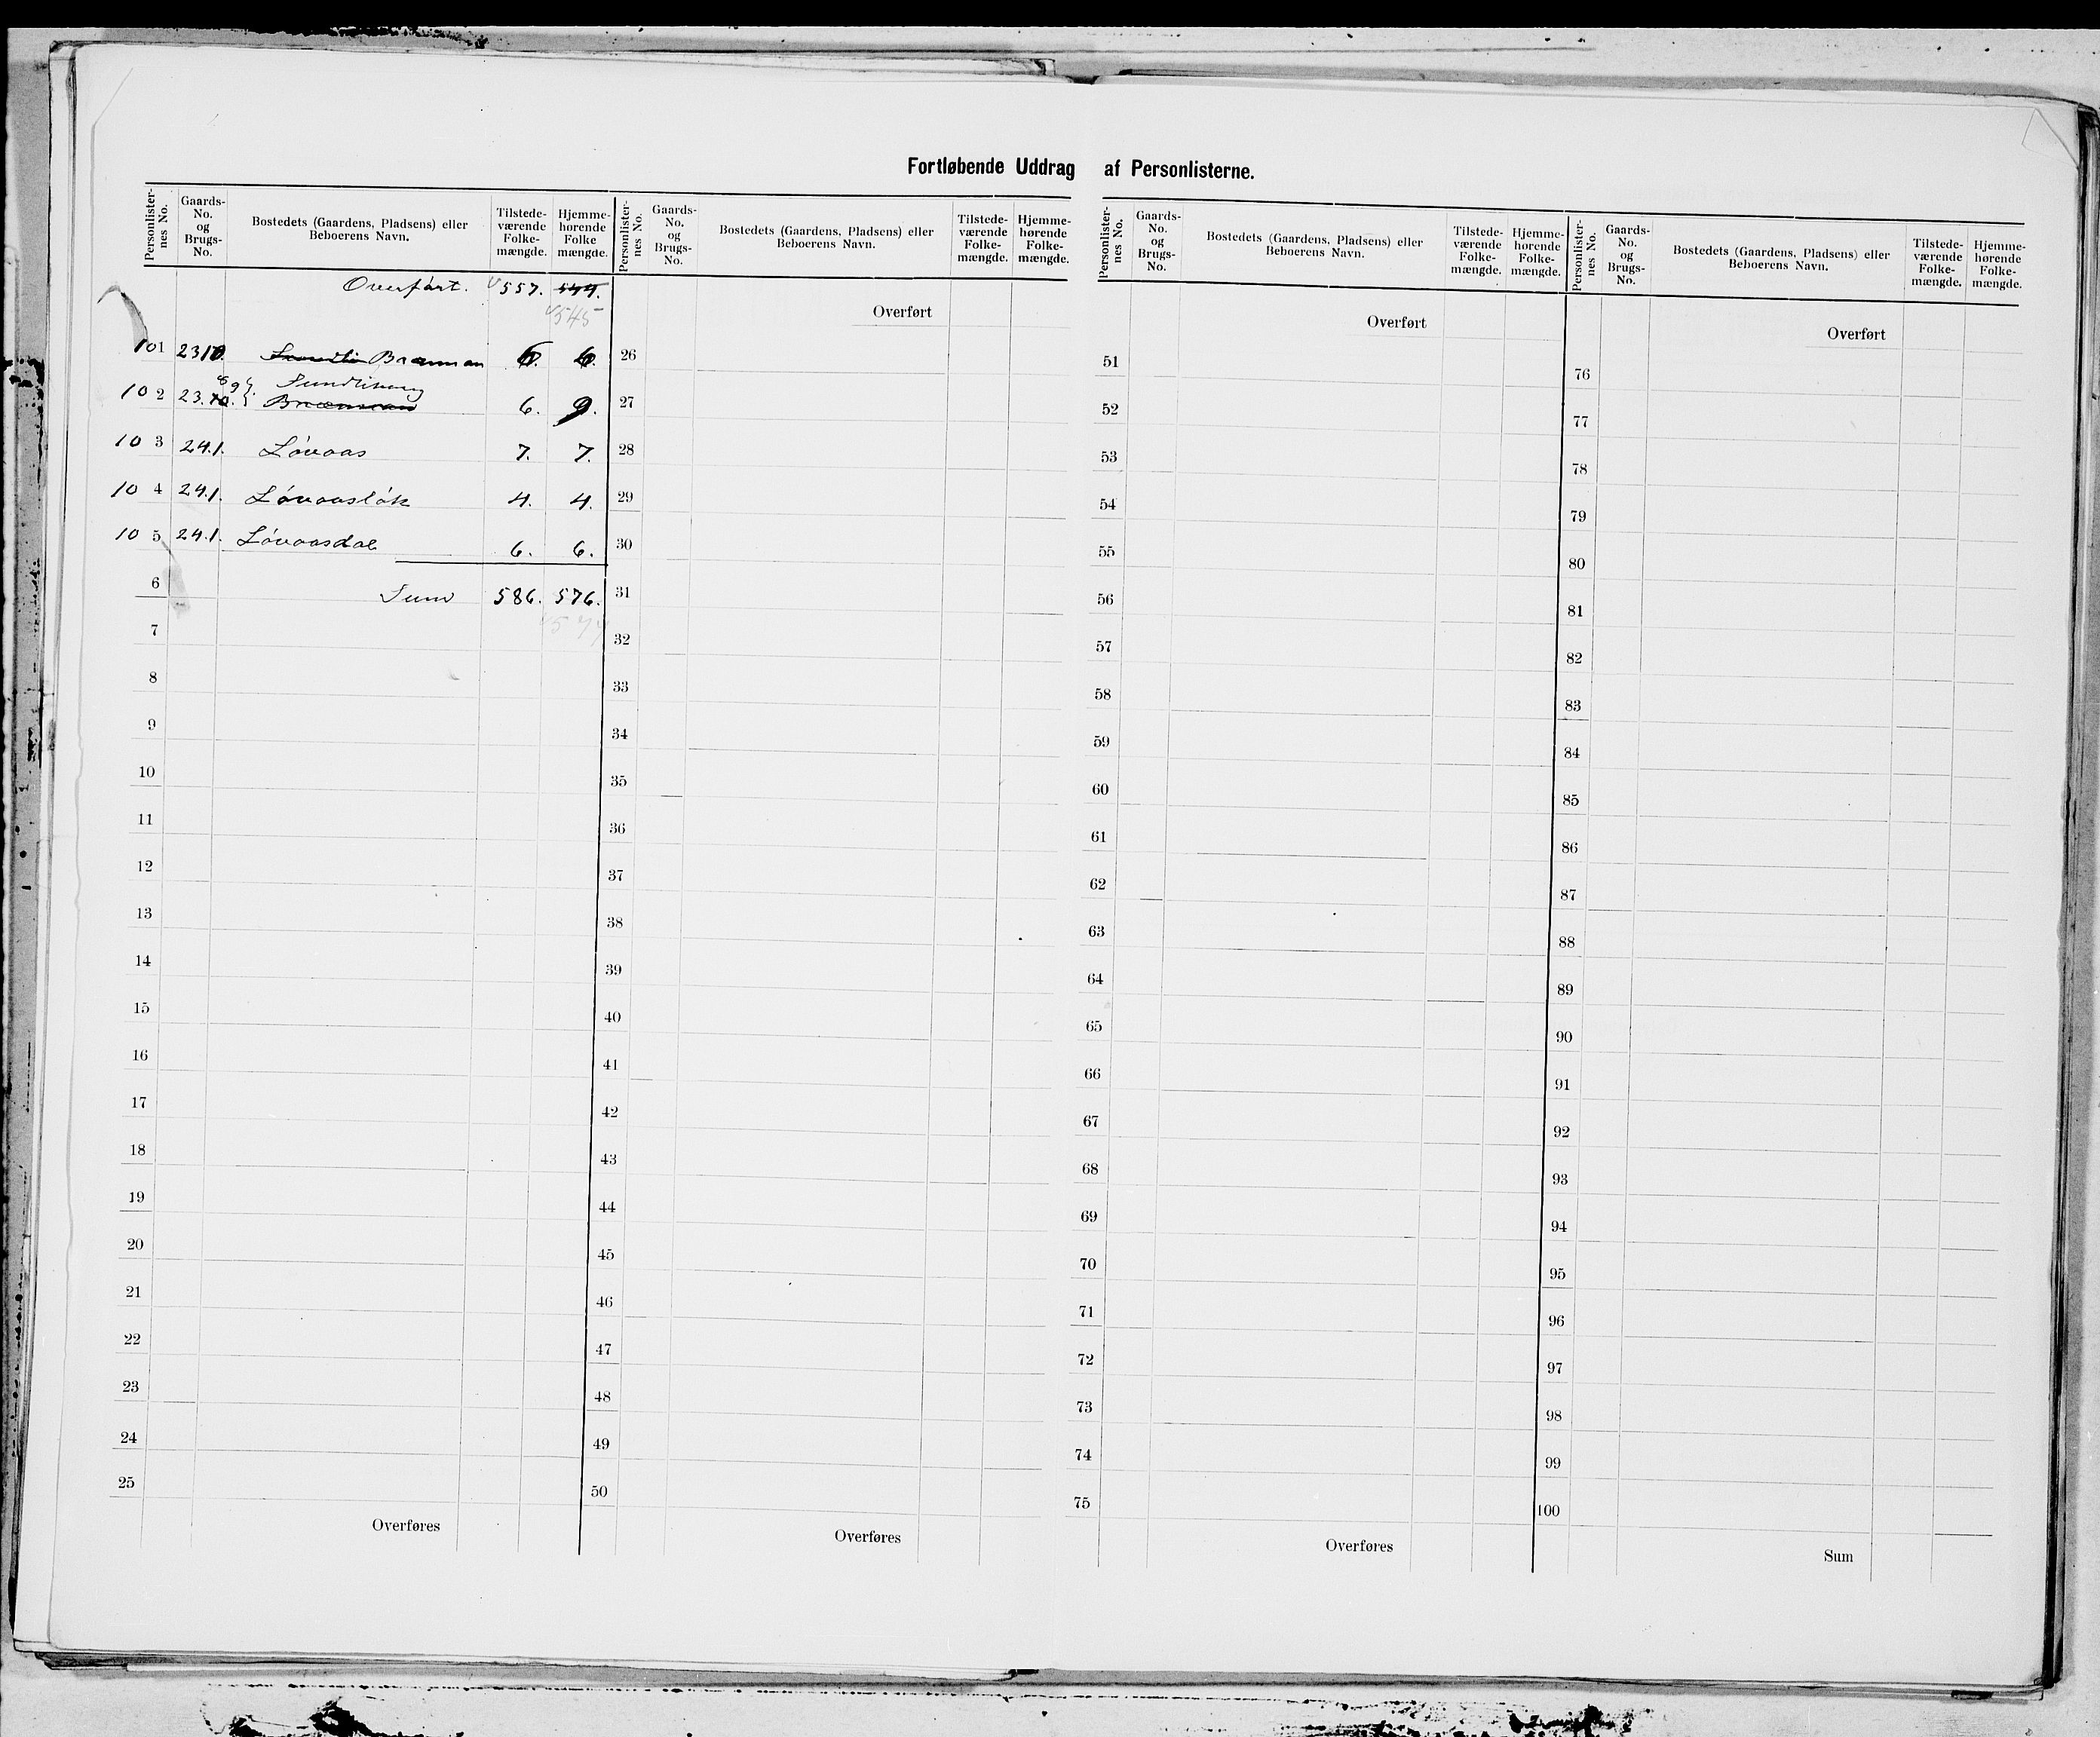 Fortløbende Uddrag af Personlisterne.
Personlister-nes No. | Gaards-No. og Brugs-No. | Bostedets (Gaardens, Pladsens) eller Beboerens Navn. | Tilstede-værende Folke-mængde. | Hjemme-hørende Folke mængde.
Overført. 557. 544.
545
101 2310. Brænmoen 6. 6.
8 9 Sundlisveg
10 2 23.10. Brænmoen 6. 9.
10 3 24.1. Lövaas 7. 7.
10 4 24.1. Lövaaslök 4. 4.
10 5 24.1. Lövaasdal 6. 6.
6 Sum 586. 576.
577
7
8
9
10
11
12
13
14
15
16
17
18
19
20
21
22
23
24
25
Overføres
Personlister-nes No. | Gaards-No. og Brugs-No. | Bostedets (Gaardens, Pladsens) eller Beboerens Navn. | Tilstede-værende Folke-mængde. | Hjemme-hørende Folke-mængde.
Overført
26
27
28
29
30
31
32
33
34
35
36
37
38
39
40
41
42
43
44
45
46
47
48
49
50
Overføres
Personlister-nes No. | Gaards-No. og Brugs-No. | Bostedets (Gaardens, Pladsens) eller Beboerens Navn. | Tilstede-værende Folke-mængde. | Hjemme-hørende Folke-mængde.
Overført
51
52
53
54
55
56
57
58
59
60
61
62
63
64
65
66
67
68
69
70
71
72
73
74
75
Overføres
Personlister-nes No. | Gaards-No. og Brugs-No. | Bostedets (Gaardens, Pladsens) eller Beboerens Navn. | Tilstede-værende Folke-mængde. | Hjemme-hørende Folke-mængde.
Overført
76
77
78
79
80
81
82
83
84
85
86
87
88
89
90
91
92
93
94
95
96
97
98
99
100
Sum